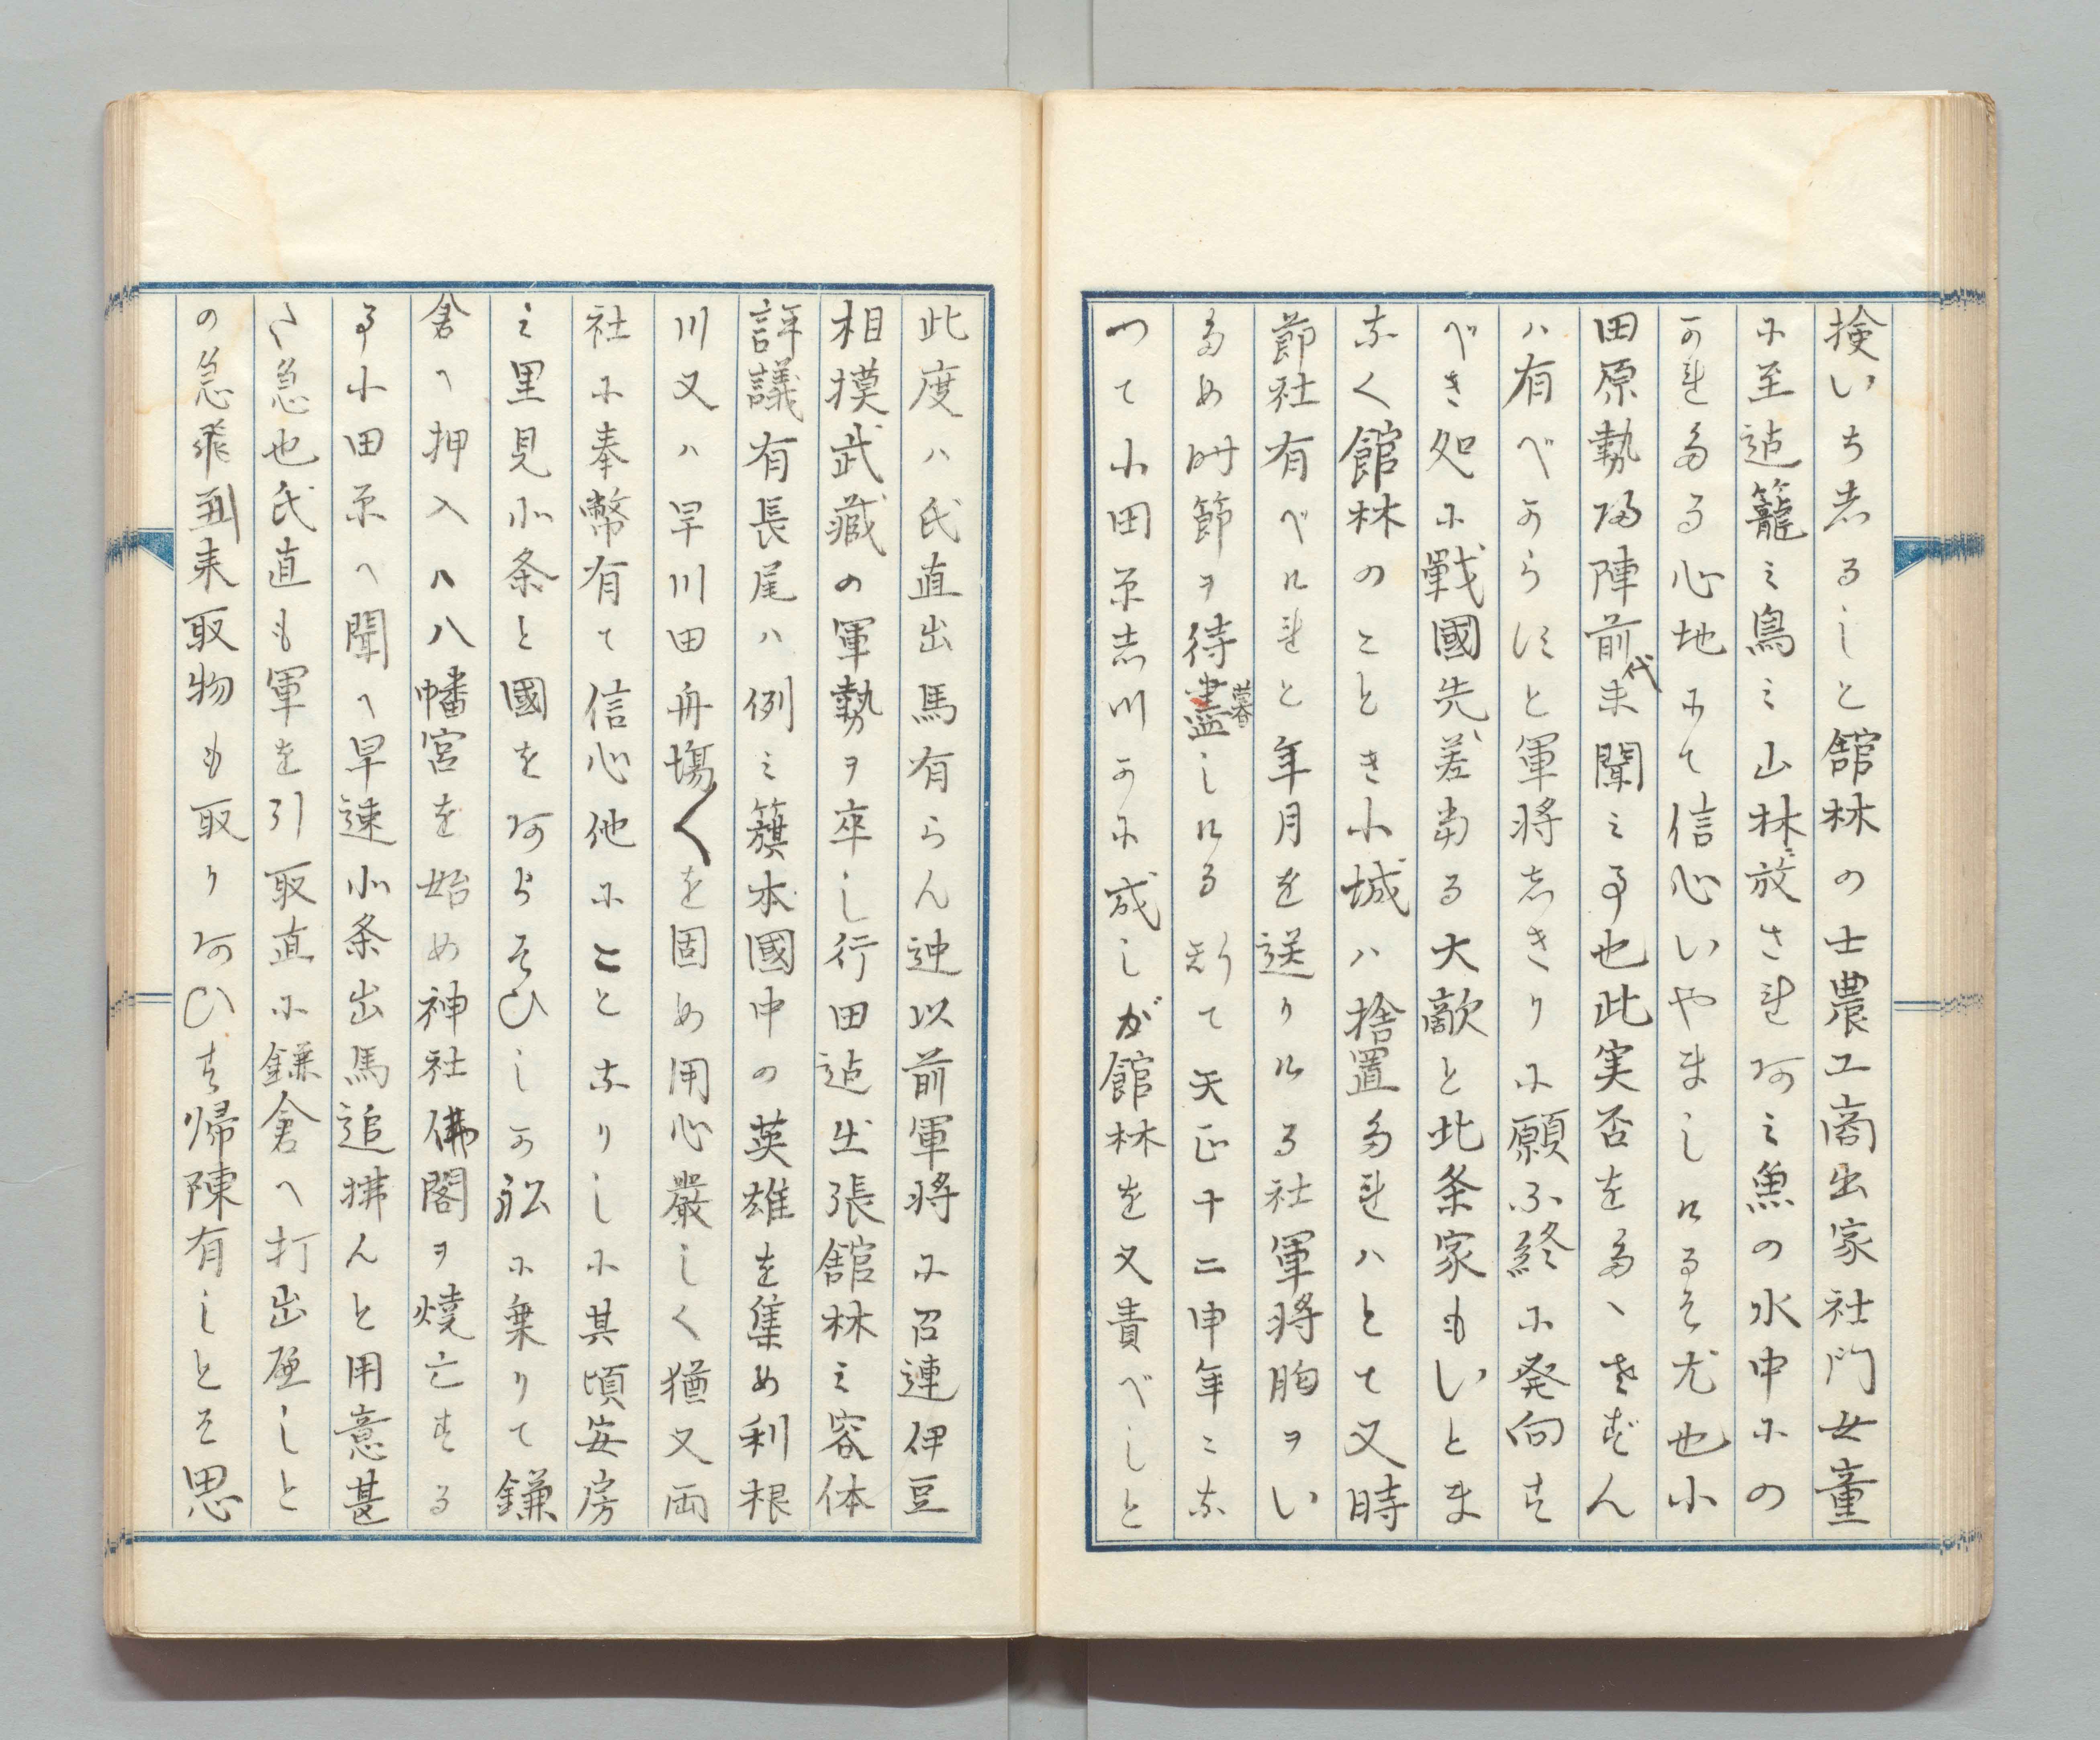 検いちしるしと舘林の士農工商出家社門女童
に至迠籠之鳥之山林放され阿之魚の水中にの
かれたる心地にて信心いやましけるそ尤也小
田原勢帰陣前代未聞之事也此実否をたゝさずん
ハ有べからすと軍将しきりに願ふ終に発向す
べき処に戦國先差当る大敵と北条家もいとま
なく館林のことき小城ハ捨置たれハとて又時
節社有べけれと年月を送りける社軍将胸をい
ため時節ヲ待暮しける斯て天正十二申年ニな
つて小田原志川かに成しが館林を又責べしと
此度ハ氏直出馬有らん迚以前軍将に召連伊豆
相摸武蔵の軍勢ヲ卒し行田迠出張舘林之容体
詳議有長尾ハ例之籏本國中の英雄を集め利根
川又ハ早川田舟塲〱を固め用心嚴しく猶又両
社に奉幣有て信心他にことなりしに其頃安房
之里見北条と國をあらそひしか舩に乗りて鎌
倉へ押入ハ八幡宮を始め神社佛閣ヲ焼亡する
事小田原へ聞へ早速北条出馬追拂んと用意甚
た急也氏直も軍を引取直に鎌倉へ打出屋しと
の急飛到来取物も取りあひす帰陳有しとそ思